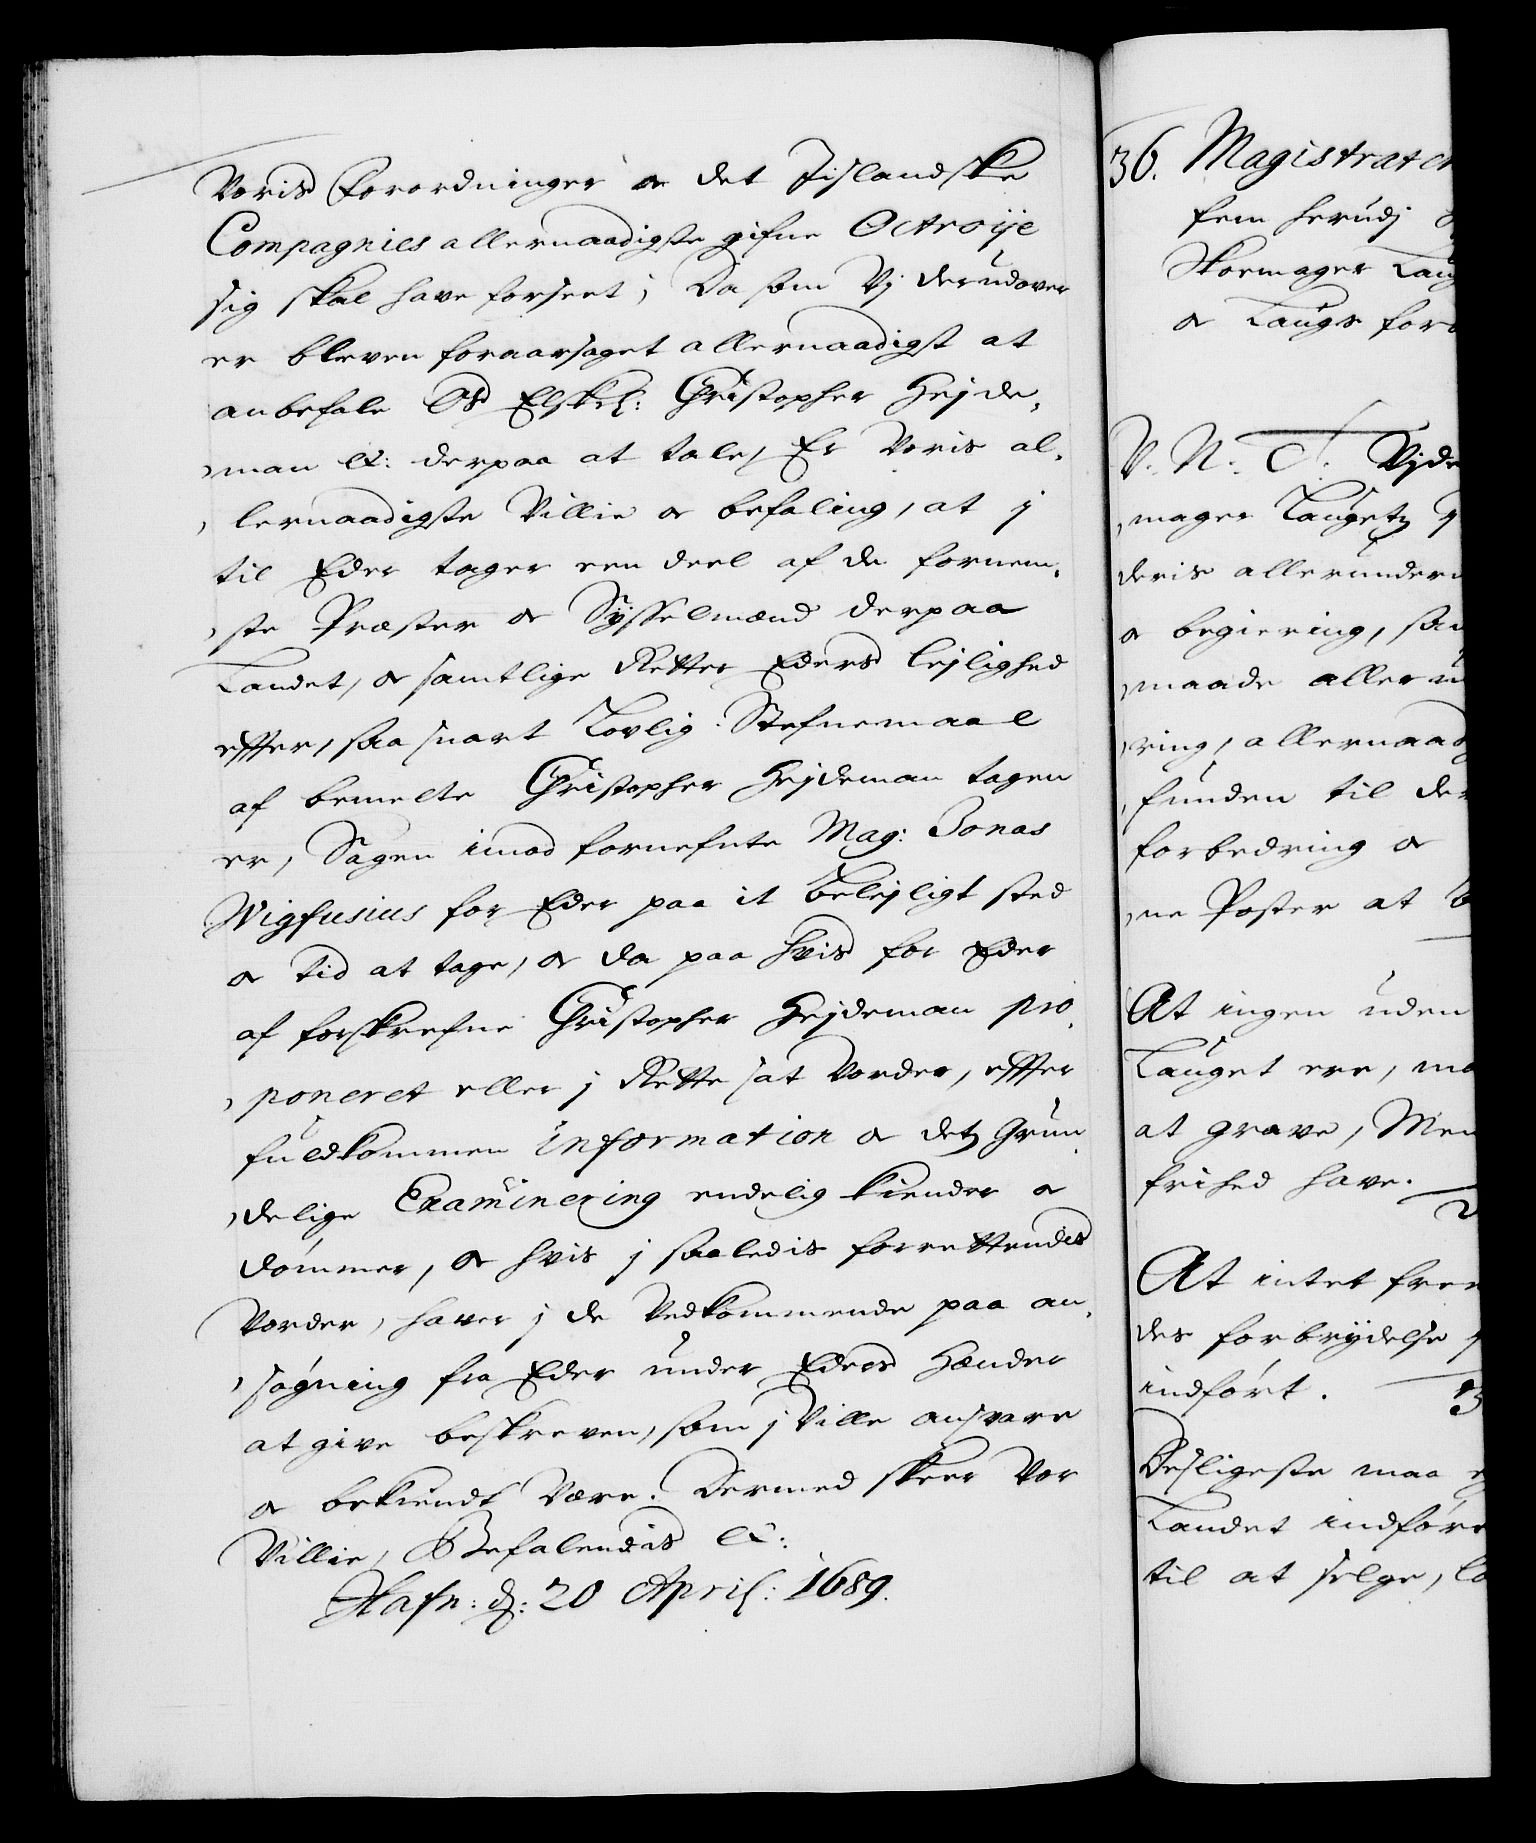 Voris Forordninger oc det Iislandske
Compagnies allernaadigste gifne Octroije
sig skal have forseet; Da som Vj derudover
er bleven foraarsaget allernaadigst at
anbefale Os Elskel: Christopher Heyde,
,man etc: derpaa at tale, Er Voris al,
,lernaadigste Villie oc befaling, at j
til Eder tager een deel af de fornem,
,ste Præster oc Sysselmænd derpaa
Landet, oc samtlige Retter Eders lejlighed
effter, saa snart Lovlig Stefnemaal
af bemelte Christopher Heydeman tagen
er, Sagen imod fornefnte Mag: Jonas
Wigfusius for Eder paa it belejligt sted
oc tid at tage, oc da paa hvis for Eder
af forskrefne Christopher Heydeman pro,
,poneret eller j Rette sat vorder, effter
fuldkommen Information oc detz Grun,
,delige Examinering endelig kiender oc
dømmer, oc hvis j saaledis forrettendis
vorder, haver j de Vedkommende paa an,
,søgning fra Eder under Eders Hænder
at give beskreven, som j Ville ansvare
oc bekiendt Være. Dermed skeer Vor
Villie, Befalendis etc:
Hafn: d: 20 April: 1689.
36. Magistraten
fem herudj
Skoemager Laug
oc Laugs for
V. N: T. Vjde
,mager Laugetz
deris allerunder
oc begiering, saa
,maade alleru
,ring, allernaad
,funden til de
forbedring oc
,ne Poster at
At ingen uden
Lauget ere, ma
at grave, Men
frihed have.
2
At intet frem
des forbrydelse
indført. 3
Desligeste maa
Landet indføre
til at selge,